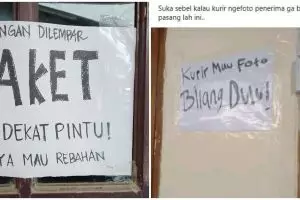 NGAN DILEMPAR
AKET
DEKAT PINTU!
YA MAU REBAHAN
Suka sebel kalau kurir ngefoto penerima ga b
pasang lah ini..
Kurir Mau Foto
Bilang Dulu!